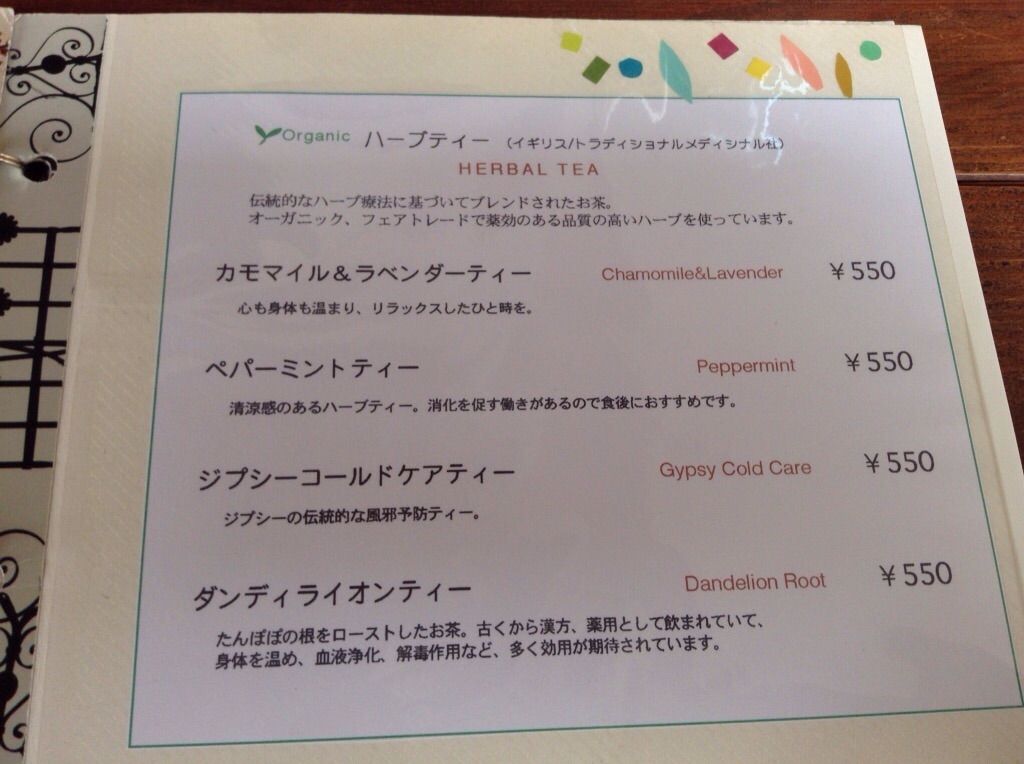 Organic ハーブティー (イギリス/トラディショナルメディシナル社)
HERBAL TEA
伝統的なハーブ療法に基づいてブレンドされたお茶。
オーガニック、フェアトレードで薬効のある品質の高いハーブを使っています。
カモマイル&ラベンダーティー Chamomile&Lavender ¥550
心も身体も温まり、リラックスしたひと時を。
ペパーミントティー Peppermint ¥550
清涼感のあるハーブティー。消化を促す働きがあるので食後におすすめです。
ジプシーコールドケアティー Gypsy Cold Care ¥550
ジプシーの伝統的な風邪予防ティー。
ダンディライオンティー Dandelion Root ¥550
たんぽぽの根をローストしたお茶。古くから漢方、薬用として飲まれていて、
身体を温め、血液浄化、解毒作用など、多く効用が期待されています。